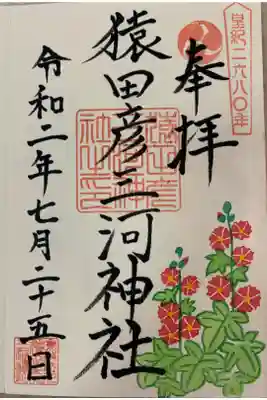 皇紀二六八〇年
奉拝
猿田彦三河神社
令和二年七月二十五日